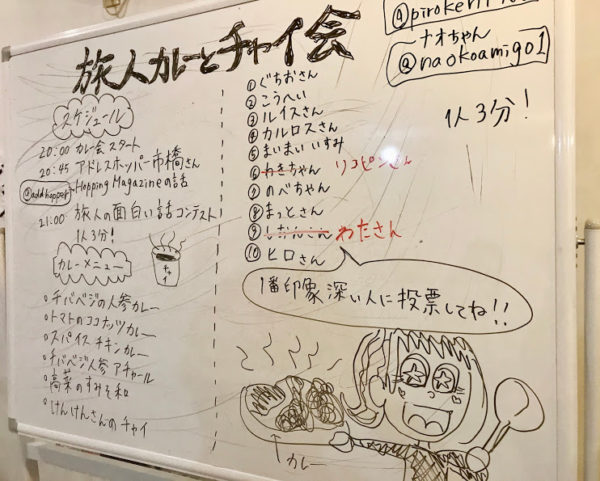 旅人カレーとチャイ会
スケジュール
20:00 カレー会スタート
20:45 アドレスホッパー市橋さん
@addhopper Hopping Magazineの話
21:00 旅人の面白い話コンテスト
1人3分!
チャイ
カレーメニュー
チバベジの人参カレー
トマトのココナッツカレー
スパイスチキンカレー
チバベジ人参アチャール
高菜のすみそ和
けんけんさんのチャイ
① ぐちおさん
② こうへい
③ ルイスさん
④ カルロスさん
⑤ まいまいいすみ
⑥ わきちゃん リコピンさん
⑦ のべちゃん
⑧ まっとさん
⑨ しおんさん わたさん
⑩ ヒロさん
ナオちゃん
@naokoamigo1
1人3分!
1番印象深い人に投票してね!!
カレー